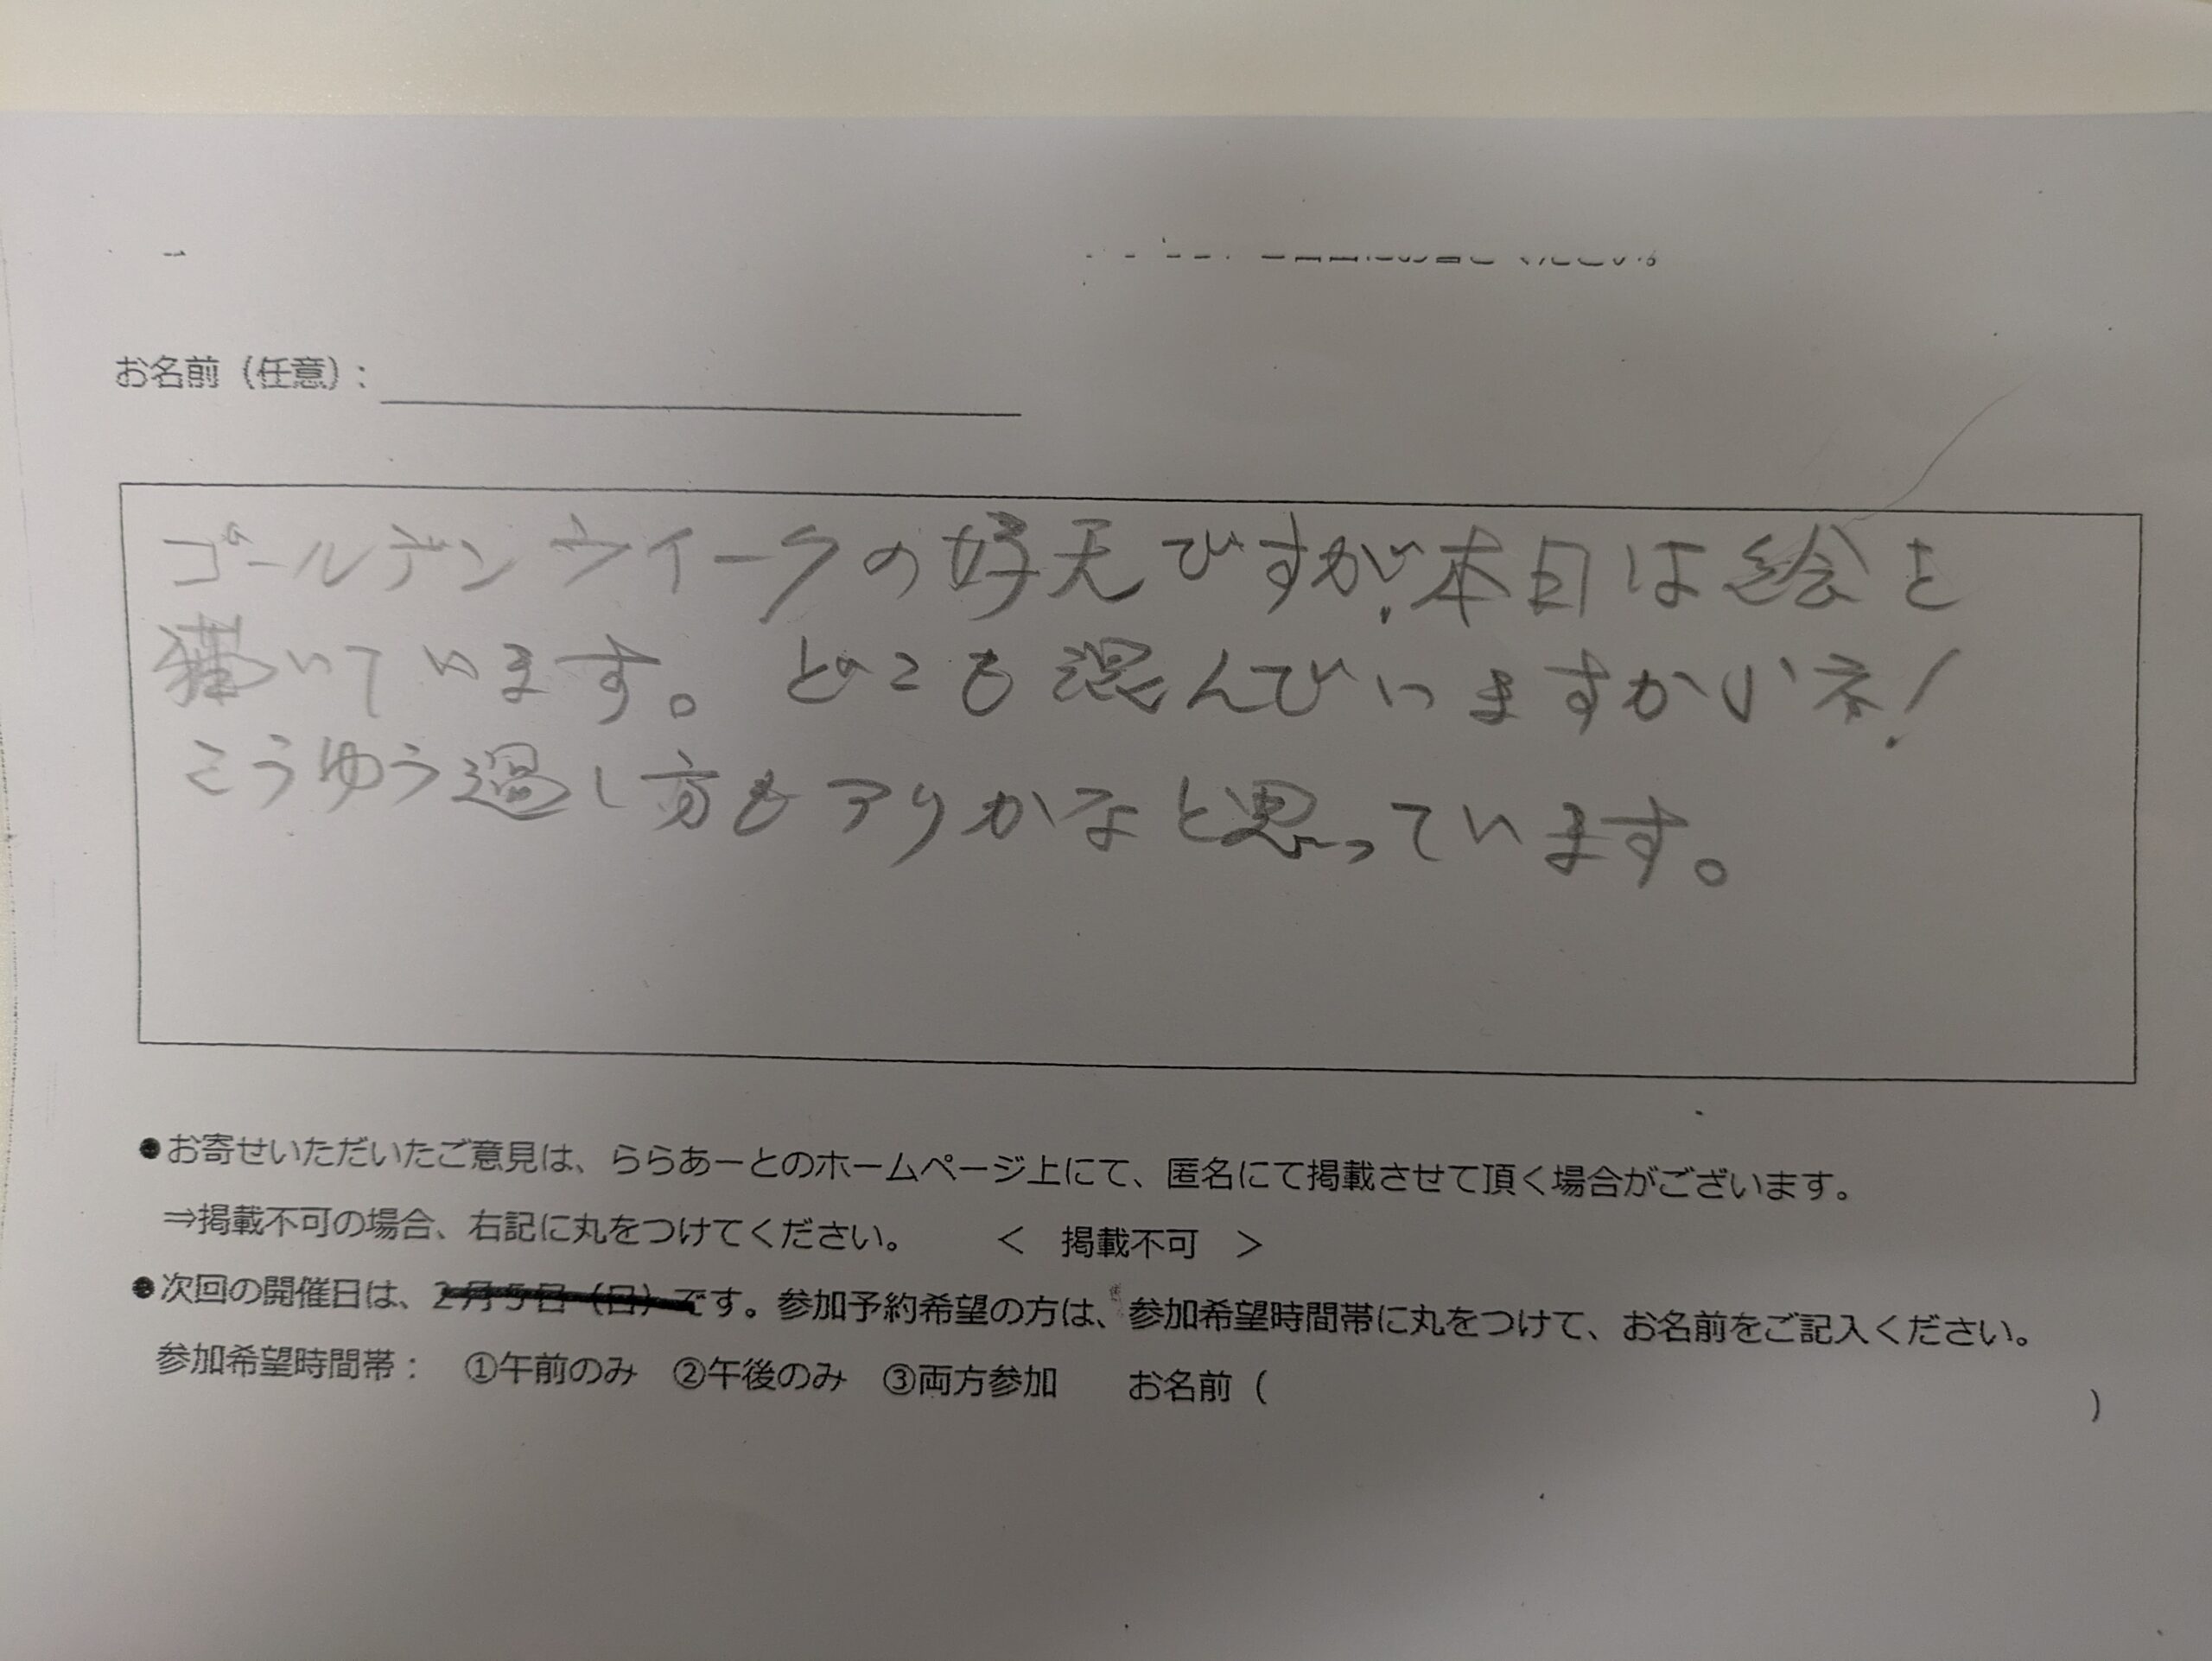 お名前（任意）：
ゴールデンウイークの好天ですが、本日は絵を
描いています。どこも混んでいますからネ！
こうゆう過し方もアリかなと思っています。
●お寄せいただいたご意見は、ららあーとのホームページ上にて、匿名にて掲載させて頂く場合がございます。
⇒掲載不可の場合、右記に丸をつけてください。　＜　掲載不可　＞
●次回の開催日は、2月5日（日）です。参加予約希望の方は、参加希望時間帯に丸をつけて、お名前をご記入ください。
参加希望時間帯：　①午前のみ　②午後のみ　③両方参加　　お名前（　　　　　　）